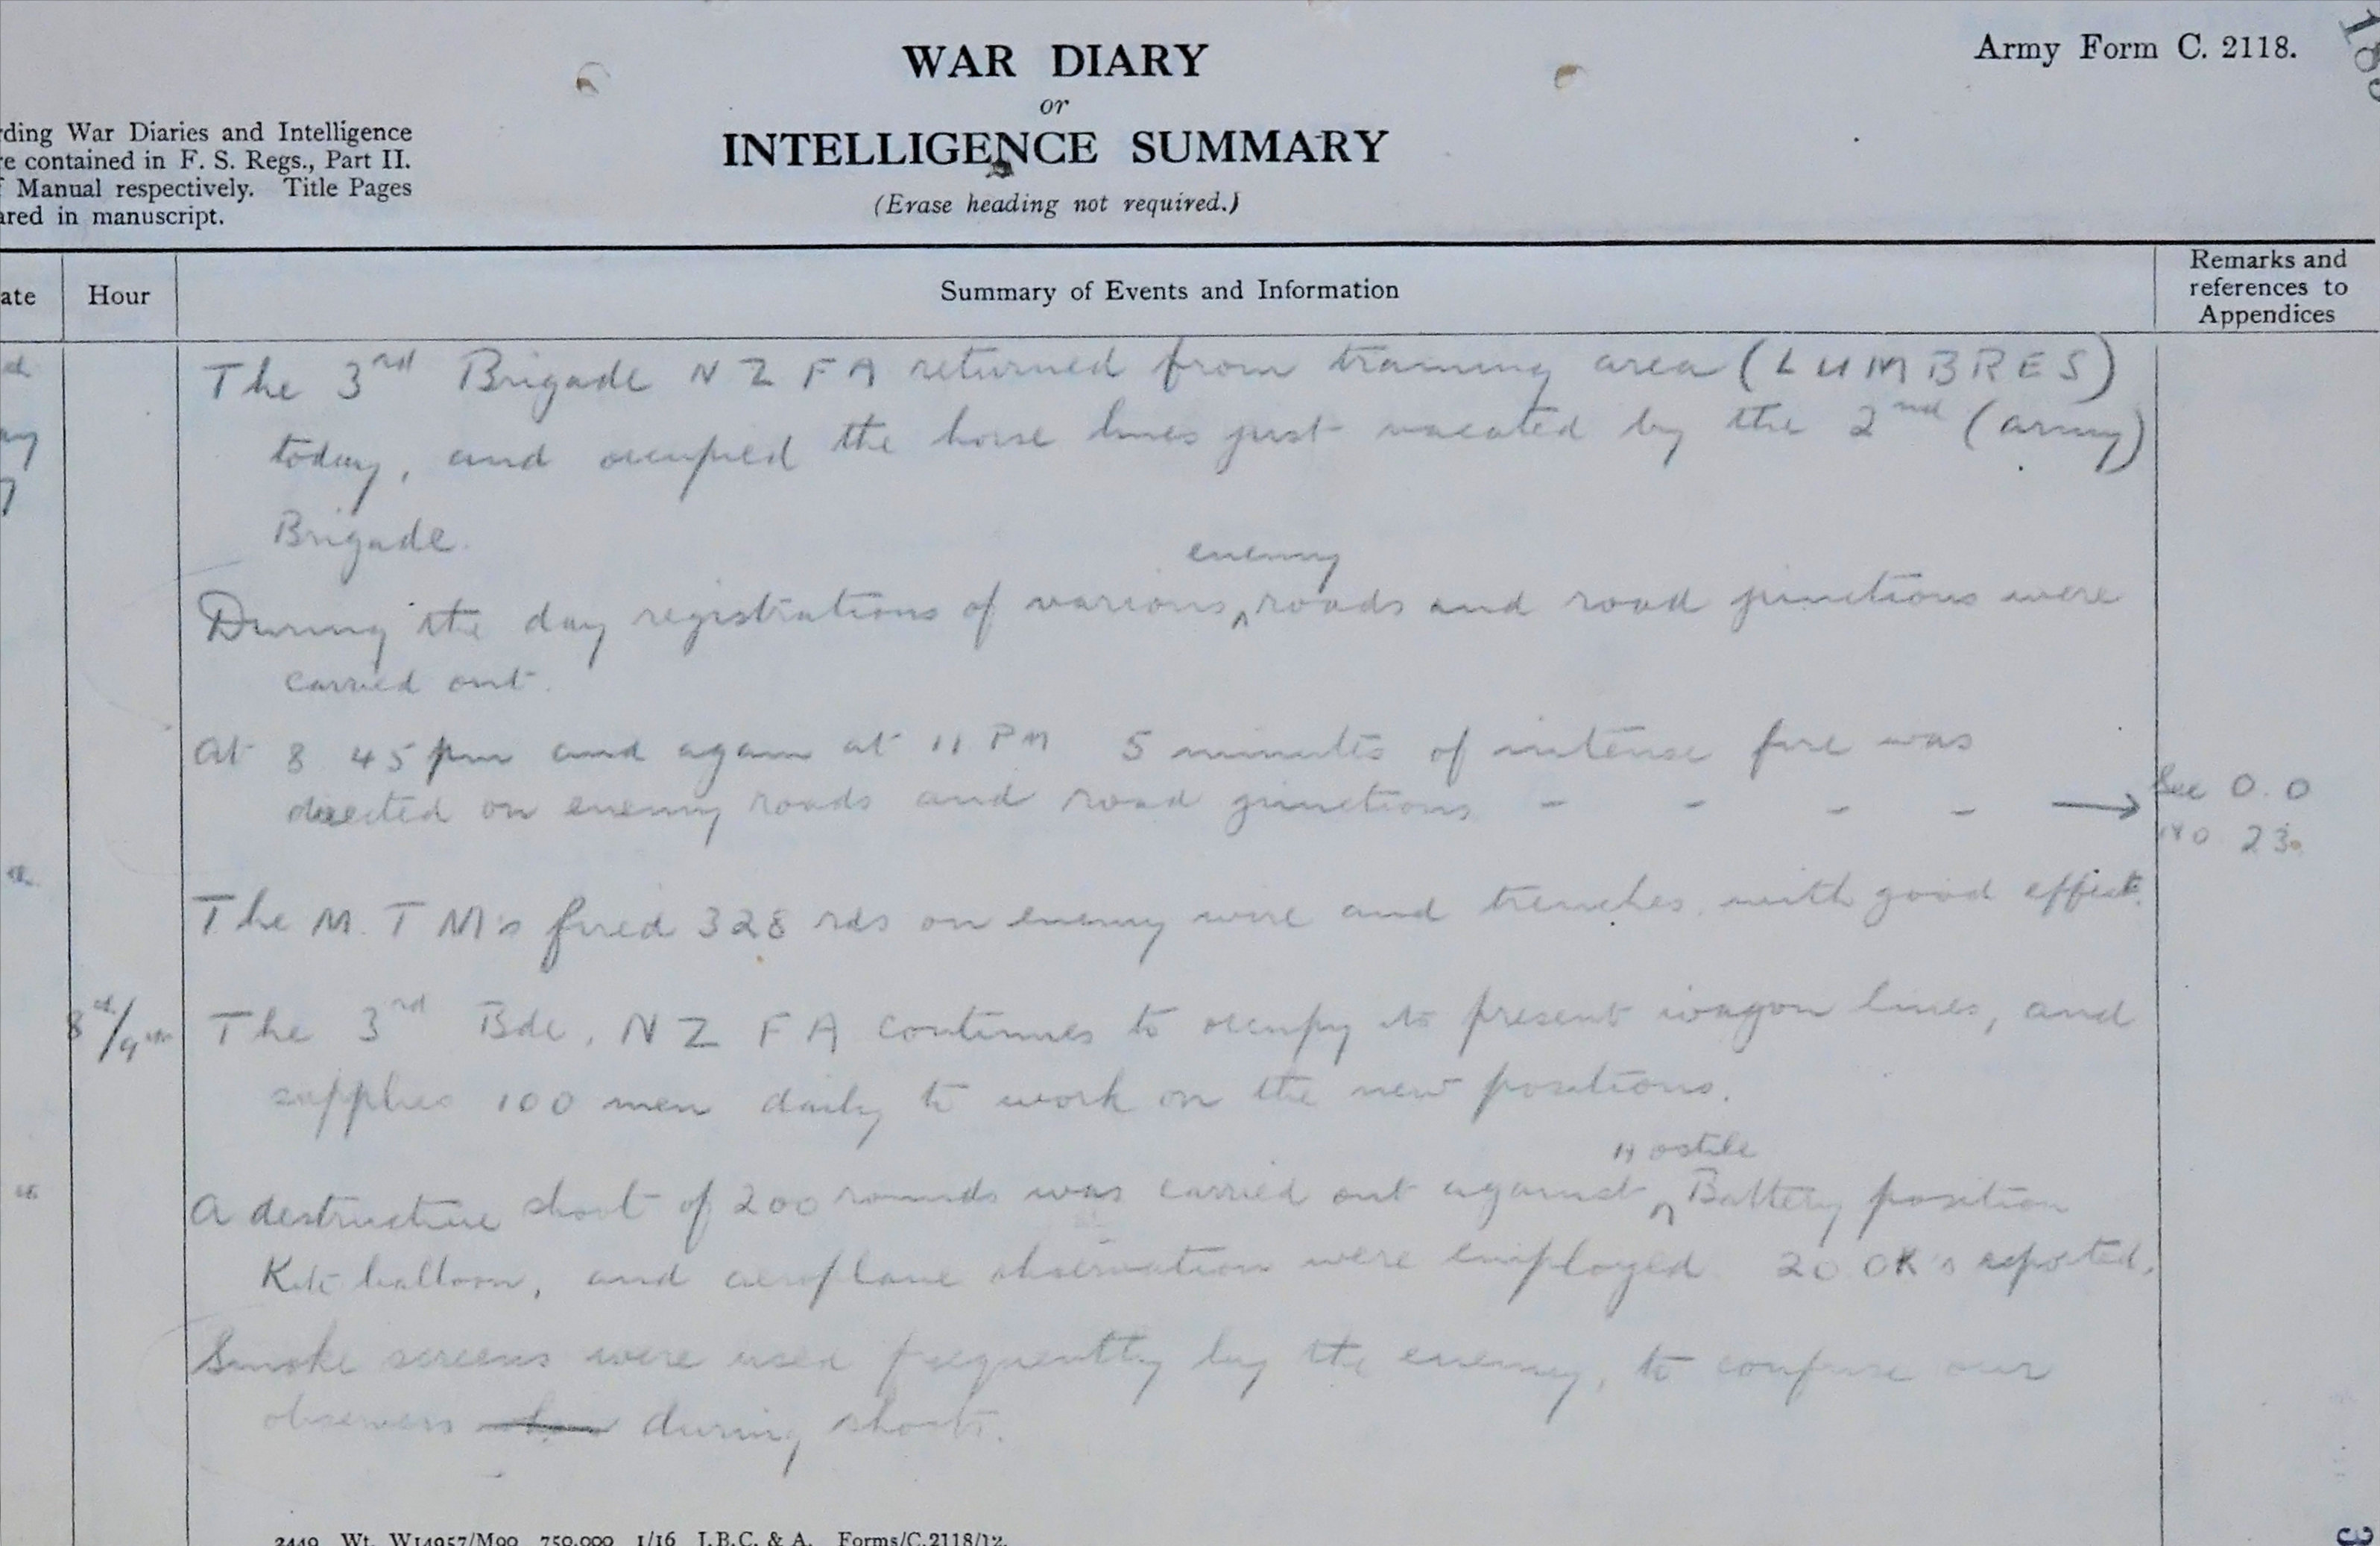 WAR DIARY
Army Form C. 2118.
or
INTELLIGENCE SUMMARY
(Erase heading not required.)
rding War Diaries and Intelligence
re contained in F. S. Regs., Part II.
Manual respectively. Title Pages
ared in manuscript.
ate
Hour
Summary of Events and Information
Remarks and
references to
Appendices
The 3rd Brigade N Z F A returned from training area (LUMBRES)
today, and occupied the horse lines just vacated by the 2nd (army)
Brigade.
enemy
During the day registrations of various ^ roads and road junctions were
carried out.
At 8 45 pm and again at 11 PM 5 minutes of intense fire was
directed on enemy roads and road junctions - - - - →
See O.O
No 23.
The M. T M's fired 328 rds on enemy wire and trenches. with good effect.
8th/9th
The 3rd Bde, N Z F A continues to occupy its present wagon lines, and
supplies 100 men daily to work on the new positions.
Hostile
A destructive shoot of 200 rounds was carried out against ^ Battery position
Kite balloon, and aeroplane observation were employed. 20 OK's reported.
Smoke screens were used frequently by the enemy, to confuse our
observers during shoots.
2449 Wt. W14957/M90 750,000 1/16 J.B.C. & A. Forms/C.2118/12.